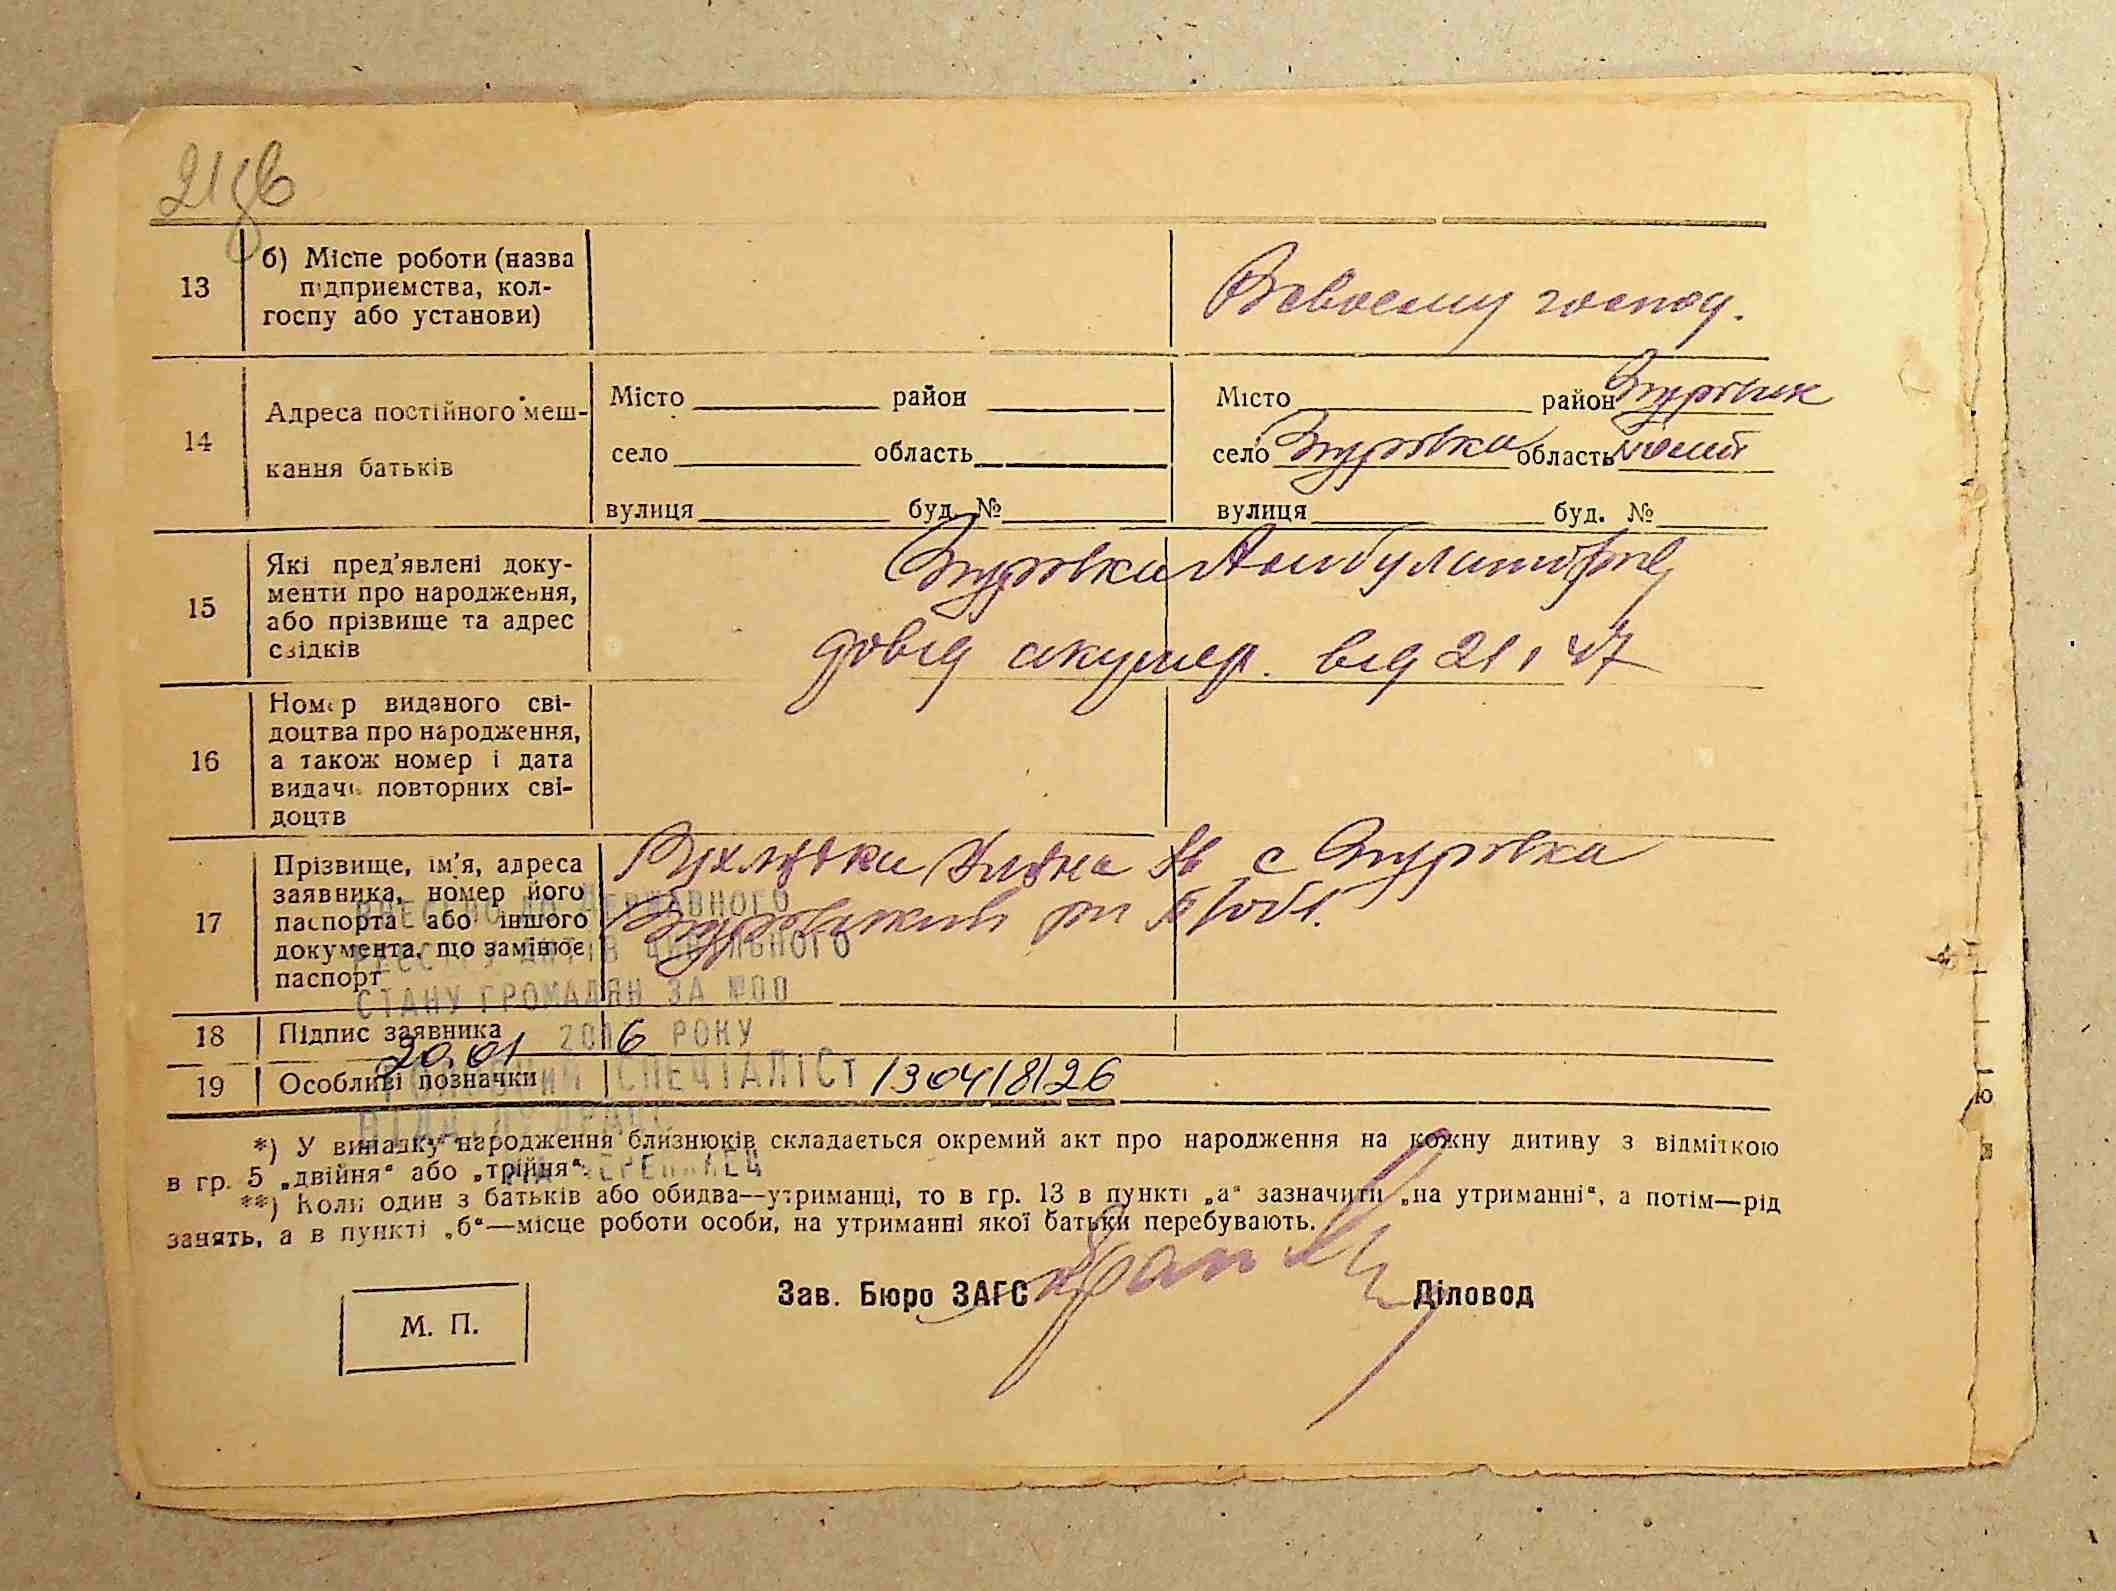 21 зв
13 б) Місце роботи (назва
підприємства, кол-
госпу або установи)
В своєму господ.
14 Адреса постійного меш-
кання батьків
Місто район
село область
вулиця буд. №
Місто район Згурівськ
село Згурівка область
вулиця буд. №
15 Які пред'явлені доку-
менти про народження,
або прізвище та адрес
свідків
Згурівка Амбулаторне
довід акушер. від 21 I 47
16 Номер виданого сві-
доцтва про народження,
а також номер і дата
видачі повторних сві-
доцтв
17 Прізвище, ім'я, адреса
заявника, номер його
паспорта або іншого
документа, що замінює
паспорт
Уляна с Згурівка
Згурівський рн обл.
ВНЕСЕНО ДО ДЕРЖАВНОГО
РЕЄСТРУ АКТІВ ЦИВІЛЬНОГО
СТАНУ ГРОМАДЯН ЗА №00
18 Підпис заявника
20.01 2016 РОКУ
19 Особливі позначки
ГОЛОВНИЙ СПЕЦІАЛІСТ 130418126
ВІДДІЛУ ДРАЦС
*) У випадку народження близнюків складається окремий акт про народження на кожну дитину з відміткою
в гр. 5 „двійня“ або „трійня“.
**) Коли один з батьків або обидва—утриманці, то в гр. 13 в пункті „а“ зазначити „на утриманні“, а потім—рід
занять, а в пункті „б“—місце роботи особи, на утриманні якої батьки перебувають.
Зав. Бюро ЗАГС Діловод
М. П.